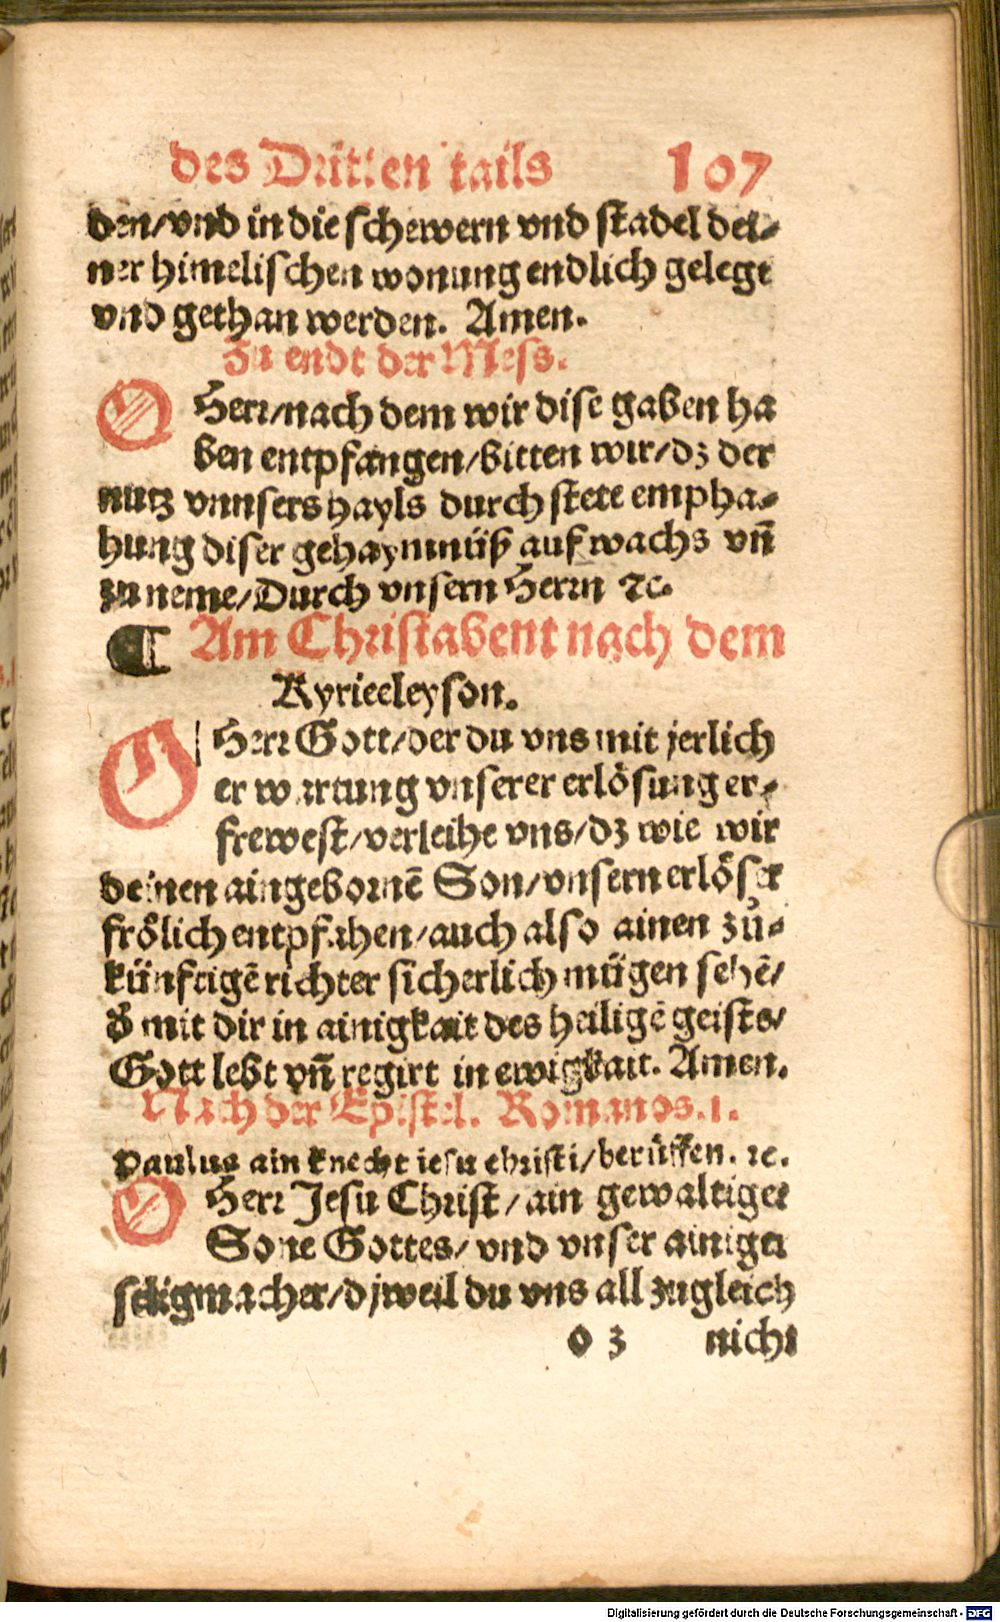 des Dritten tails 107
den/vnd in die schewern vnd stadel dei⸗
ner himelischen wonung endlich gelegt
vnd gethan werden. Amen.
Zu endt der Mess.
O Herr/nach dem wir dise gaben ha
ben entpfangen/bitten wir/dz der
nutz vnnsers hayls durch stete empha⸗
hung diser gehaymnüß auf wachs vñ
zu neme/Durch vnsern Herrn ꝛc.
¶ Am Christabent nach dem
Kyrieeleyson.
O Herr Gott/der du vns mit jerlich
er wartung vnserer erlösung er⸗
frewest/verleihe vns/dz wie wir
deinen aingebornē Son/vnsern erlöser
frölich entpfahen/auch also ainen zů⸗
künfftigē richter sicherlich mügen sehē/
d̕ mit dir in ainigkait des heiligē geists/
Gott lebt vñ regirt in ewigkait. Amen.
Nach der Epistel. Romanos.1.
Paulus ain knecht iesu christi/berüffen. ꝛc.
O Herr Jesu Christ/ain gewaltiger
Sone Gottes/vnd vnser ainiger
seligmacher/djweil du vns all zugleich
o 3 nicht
Digitalisierung gefördert durch die Deutsche Forschungsgemeinschaft - DFG